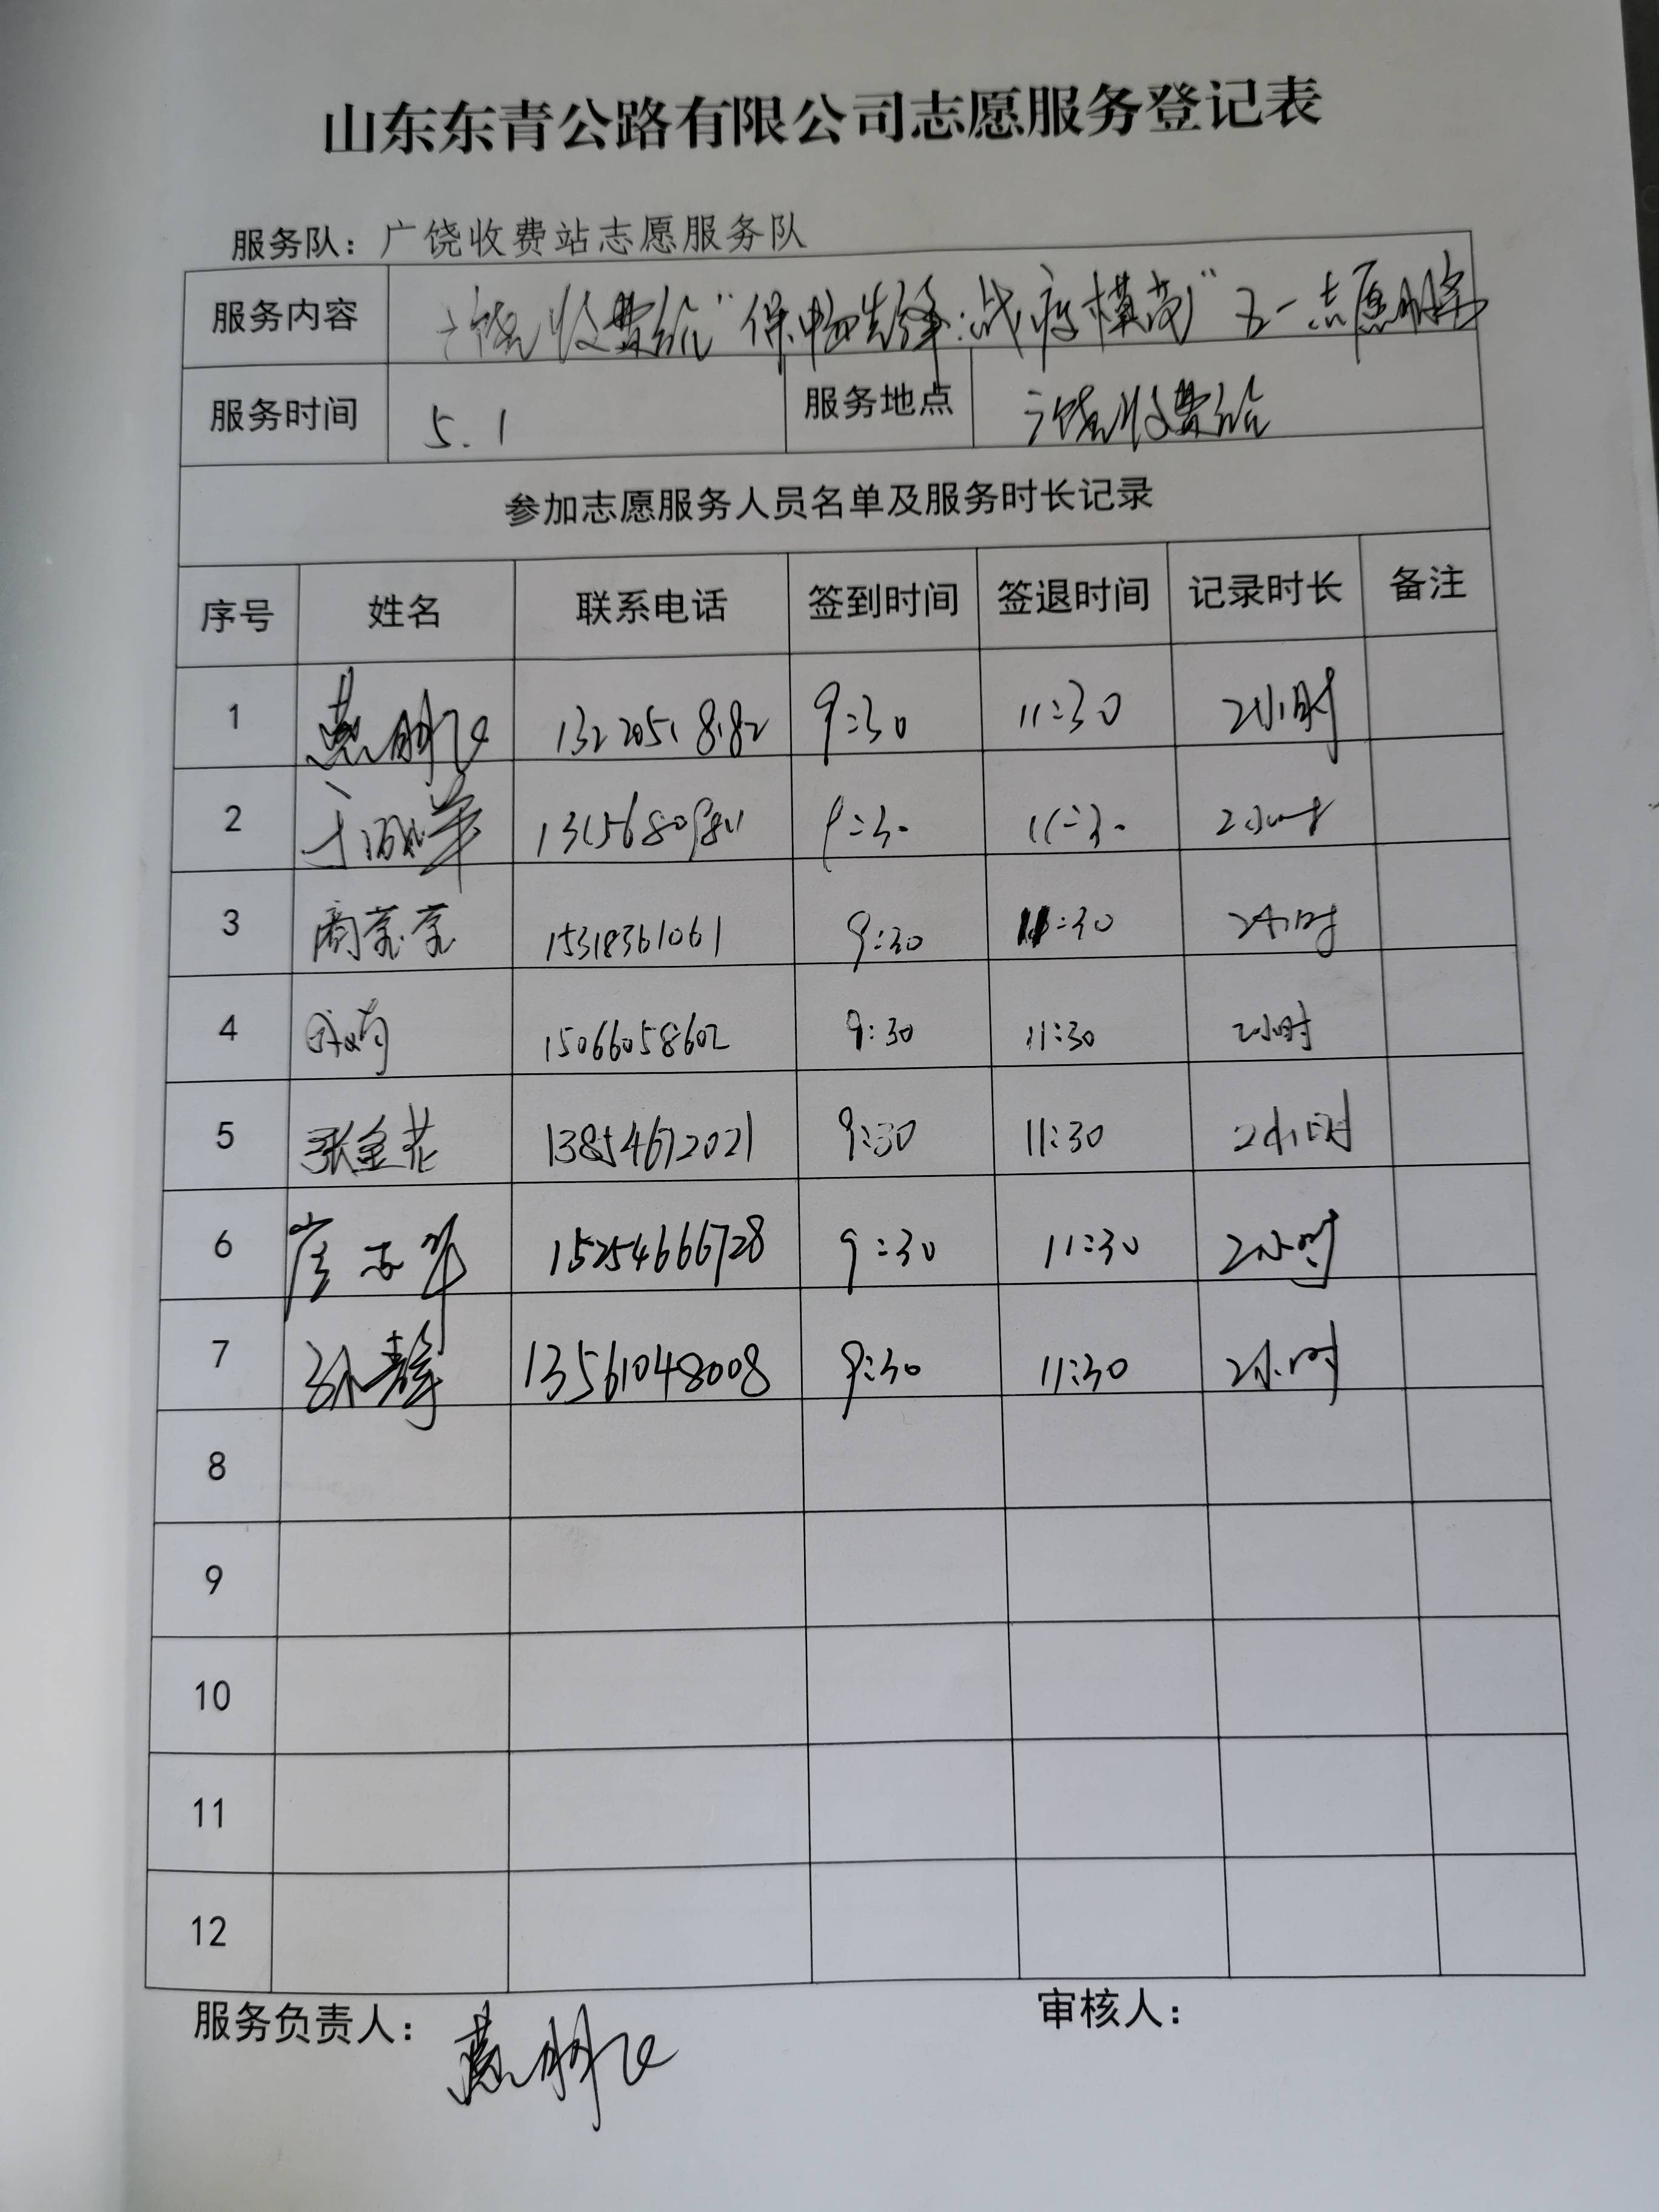 山东东青公路有限公司志愿服务登记表
服务队：广饶收费站志愿服务队
服务内容 广饶收费站"保畅先锋.战疫模范"五一志愿服务
服务时间 5.1 服务地点 广饶收费站
参加志愿服务人员名单及服务时长记录
序号 姓名 联系电话 签到时间 签退时间 记录时长 备注
1 9:30 11:30 2小时
2 9:30 11:30 2小时
3 15318361061 9:30 11:30 2小时
4 15066058602 9:30 11:30 2小时
5 张金花 13854672021 9:30 11:30 2小时
6 15254666728 9:30 11:30 2小时
7 孙静 13561048008 9:30 11:30 2小时
8
9
10
11
12
服务负责人： 审核人：